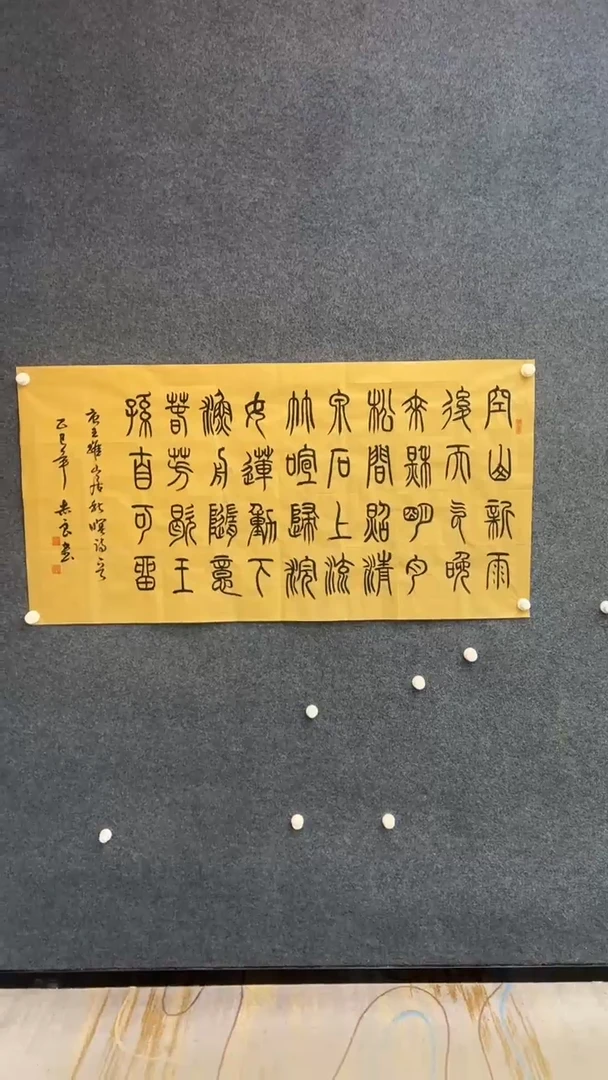 空山新雨
後天气晚
來秋明月
松間照清
泉石上流
竹喧歸浣
女蓮動下
漁舟隨意
春芳歇王
孫自可留
唐王維山居秋暝詩
乙巳年 良書